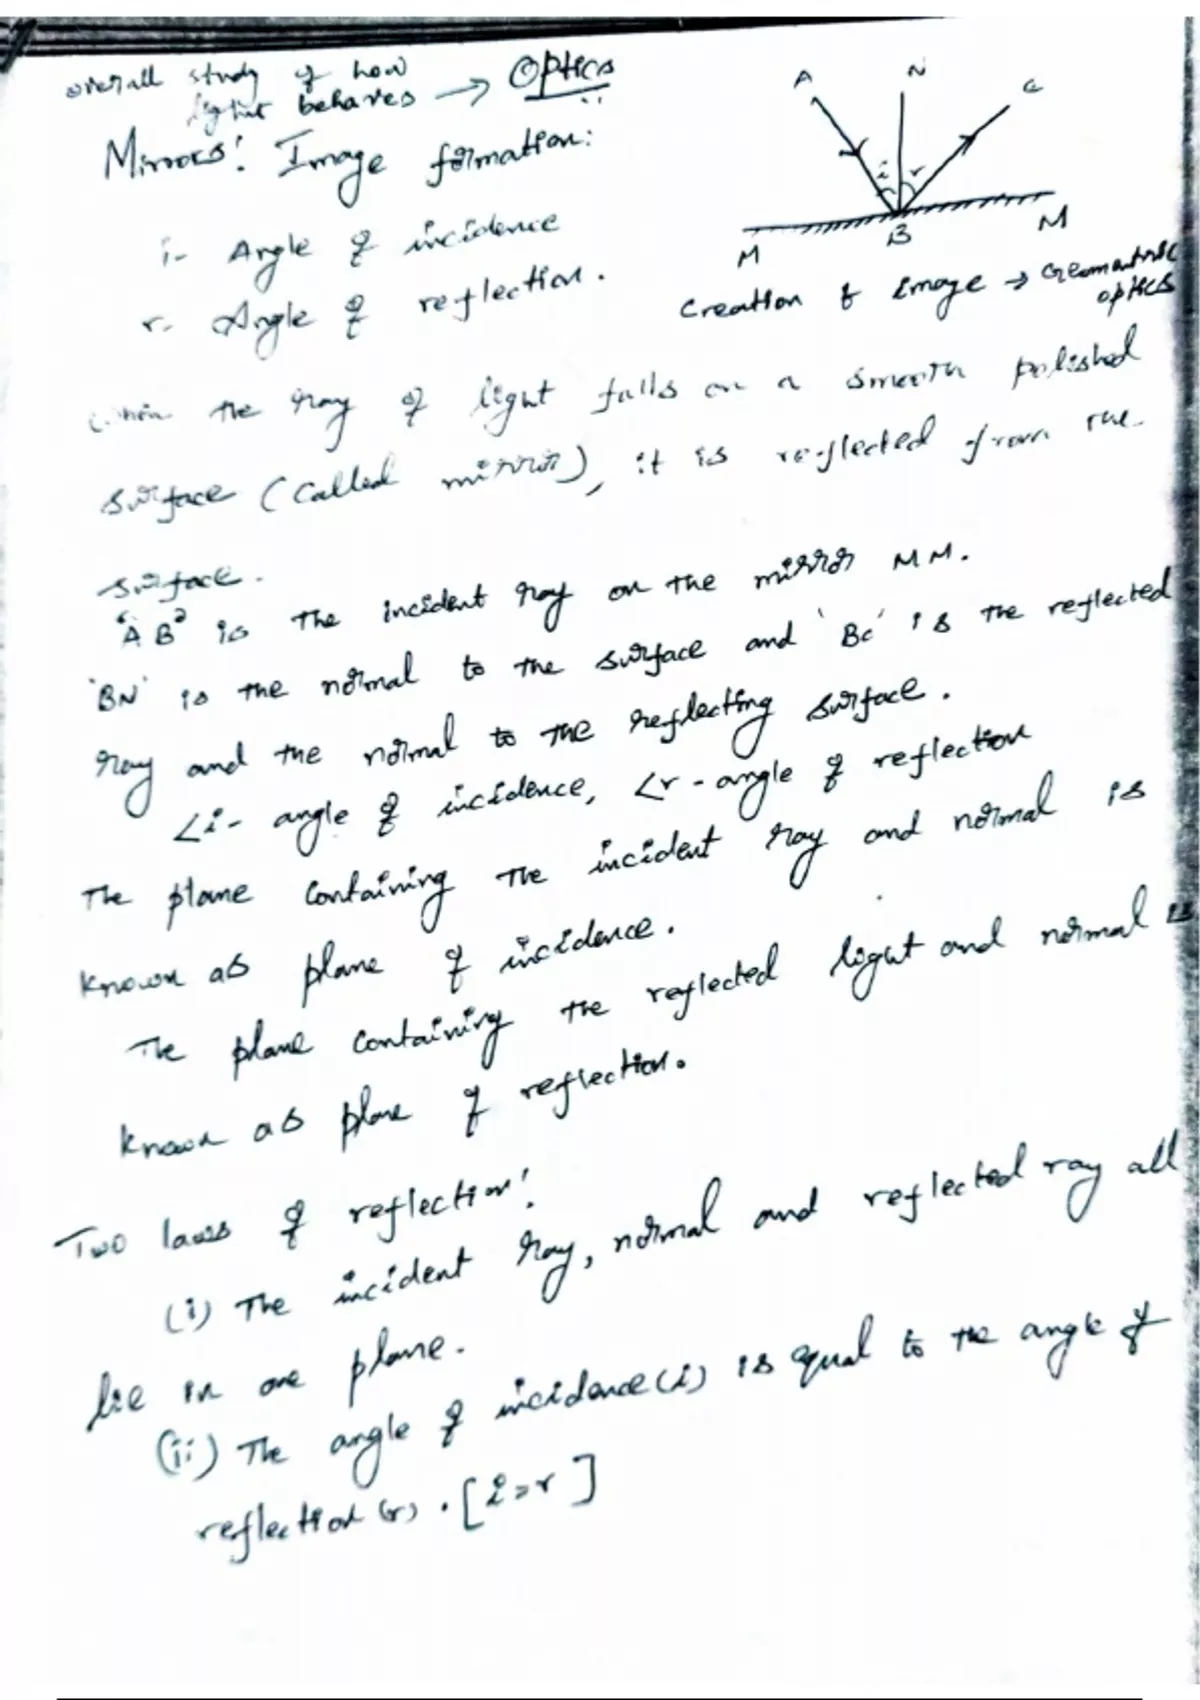 overall study of how
light behaves → Optics
Mirrors: Image formation:
i- Angle of incidence
r- Angle of reflection.
A N C
i r
M B M
Creation of image → Geomentric
optics
when the ray of light falls on a smooth polished
surface (called mirror), it is reflected from the
surface.
'AB' is the incident ray on the mirror MM.
'BN' is the normal to the surface and 'BC' is the reflected
ray and the normal to the reflecting surface.
∠i- angle of incidence, ∠r - angle of reflection
The plane containing the incident ray and normal is
known as plane of incidence.
The plane containing the reflected light and normal is
known as plane of reflection.
Two laws of reflection:
(i) The incident ray, normal and reflected ray all
lie in one plane.
(ii) The angle of incidence (i) is equal to the angle of
reflection (r). [i=r]